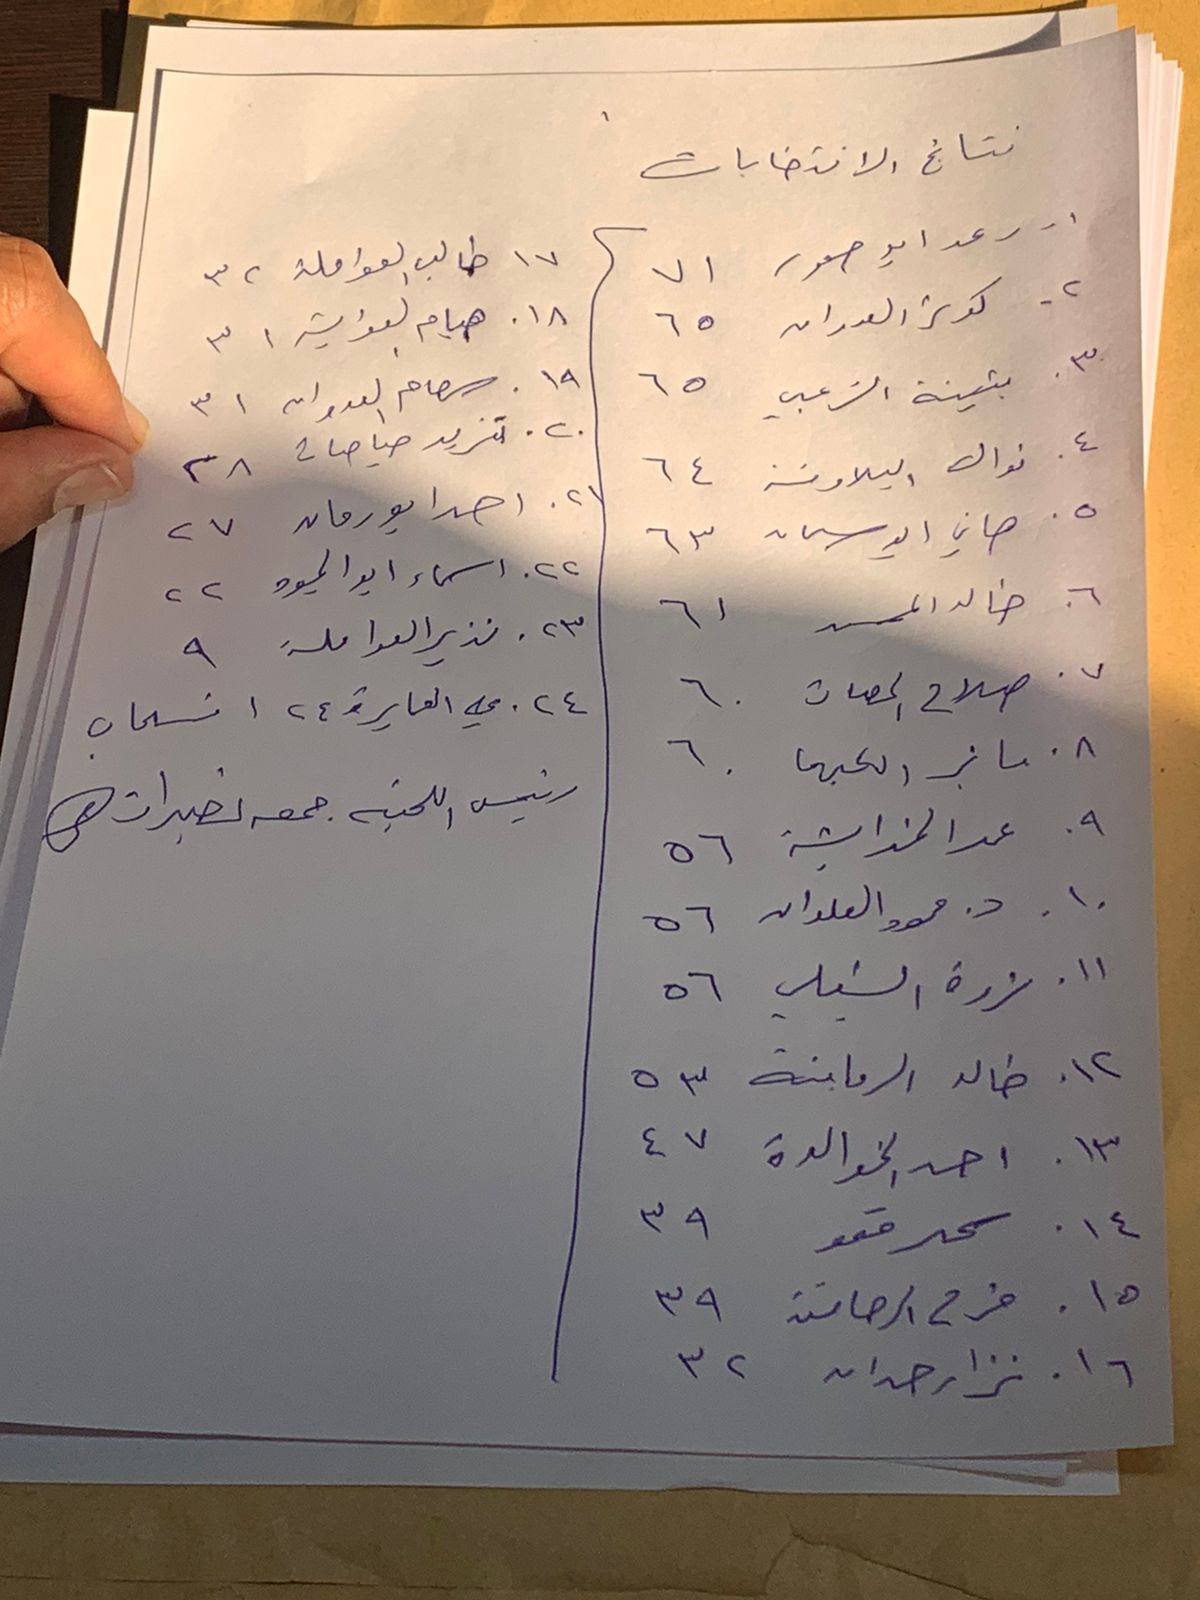 نتائج الانتخابات
١- رعد ابو صعور ٧١
٢- كوثر العدوان ٦٥
٣. بثينة الزعبي ٦٥
٤. نوال البلاونة ٦٤
٥. هاني ابو سليمان ٦٣
٦. خالد ٦١
٧. صلاح ٦٠
٨. مانيا ٦٠
٩. عبدالخرابشة ٥٦
١٠. د. محمود العلوان ٥٦
١١. مروة الشبلي ٥٦
١٢. خالد الرماضنة ٥٣
١٣. احمد الخوالدة ٤٧
١٤. سحر ققو ٣٩
١٥. فرح الرحامنة ٣٩
١٦. نزار حمدان ٣٢
١٧ طالب العواملة ٣٢
١٨. هيام العوايشة ٣١
١٩. سهام العدوان ٣١
٢٠. تغريد حياصات ٢٨
٢١. احمد ابو رمان ٢٧
٢٢. اسماء ابو الحيود ٢٢
٢٣. نذير العواملة ٩
٢٤. مي العايرة ٢٤ انسحاب
رئيس اللجنة. جمعه نصيرات